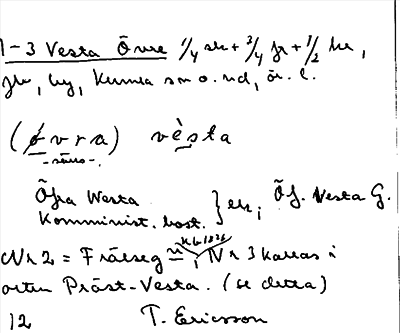 1-3 Vesta Övre 1/4 sk + 3/4 fr + 1/2 hr,
by, Kumla sn o. hd, ör. l.
(øvra) vèsta
Öfra Westa
Komminist. bost. } ek, Öf. Vesta G.
Nr 2 = Frälseg, Nr 3 kallas i
orten Präst-Vesta. (se detta)
12 T. Ericsson